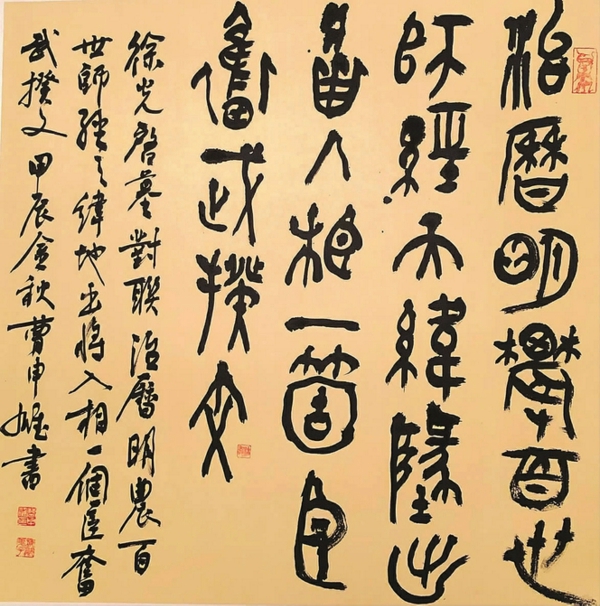 治曆明農百世
師經天緯地出
將入相一箇臣
奮武揆文
徐光啓墓對聯治曆明農百
世師經天緯地出將入相一個臣奮
武揆文甲辰金秋曹申書